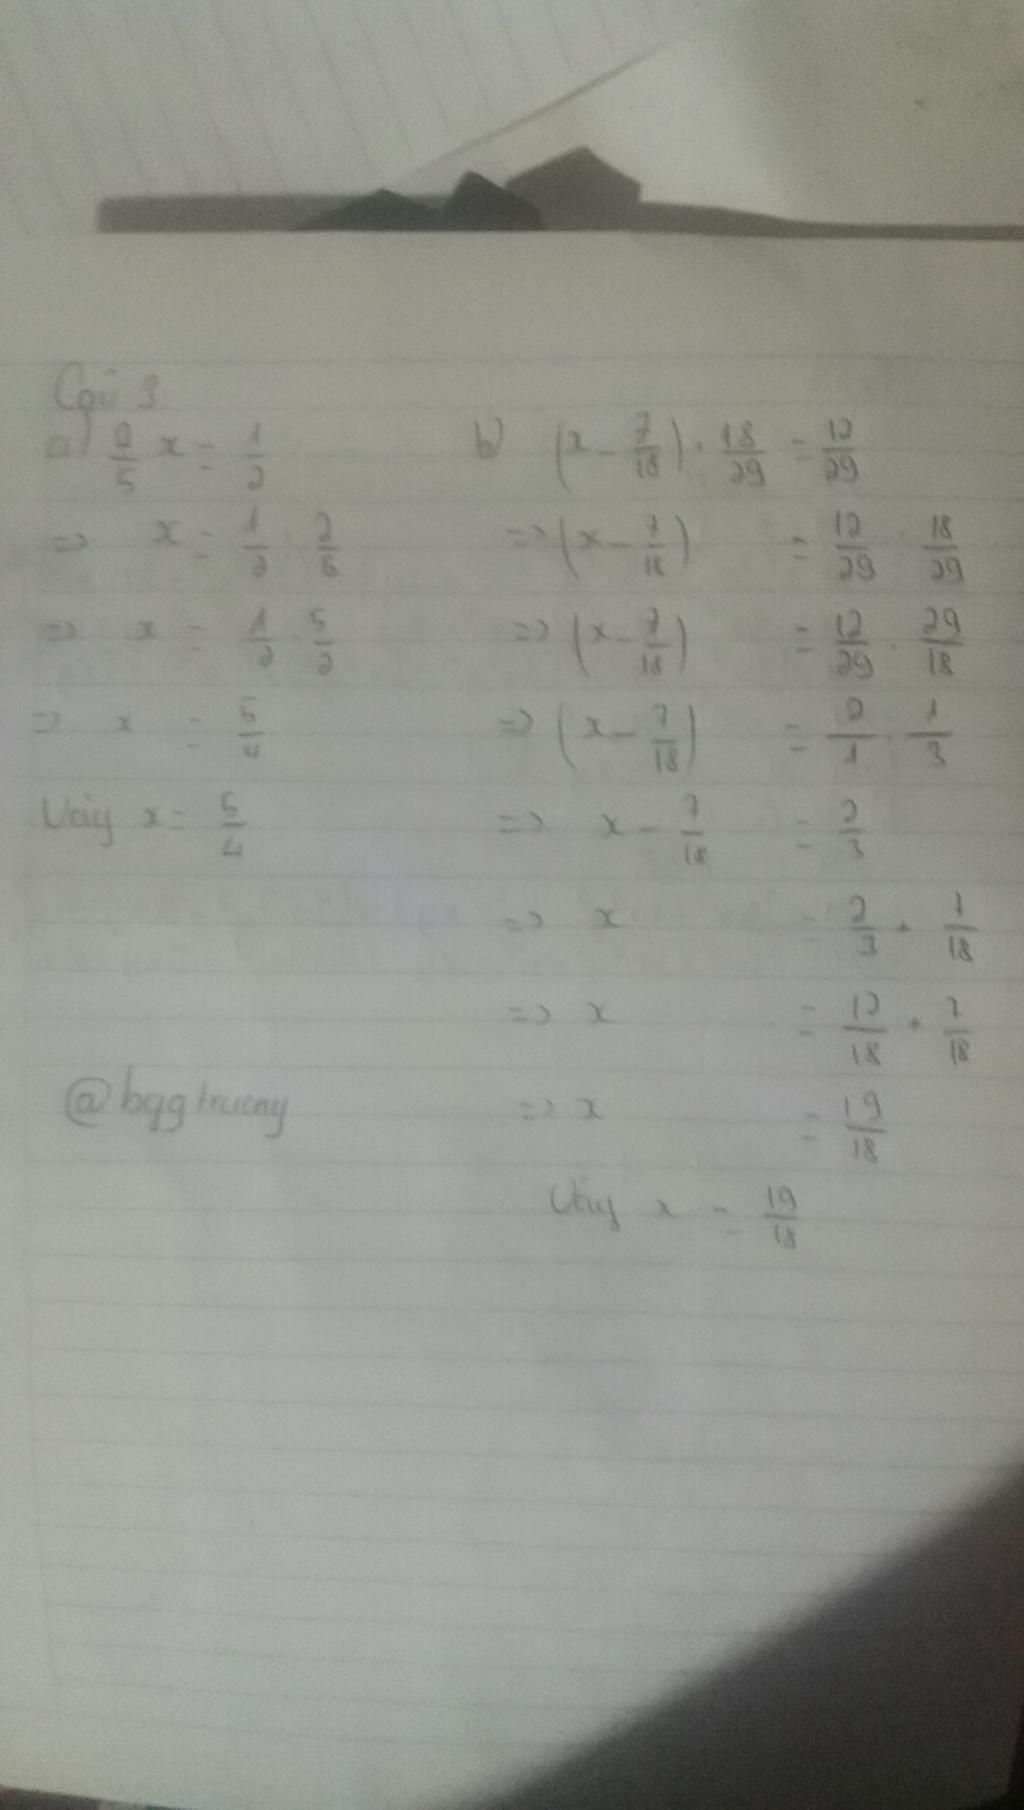 Câu 3
a) 2/5 x = 1/2
=> x = 1/2 : 2/5
=> x = 1/2 . 5/2
=> x = 5/4
Vậy x = 5/4
@bggtruong
b) (x - 7/18) . 18/29 = 12/29
=> (x - 7/18) = 12/29 : 18/29
=> (x - 7/18) = 12/29 . 29/18
=> (x - 7/18) = 2/1 . 1/3
=> x - 7/18 = 2/3
=> x = 2/3 + 7/18
=> x = 12/18 + 7/18
=> x = 19/18
Vậy x = 19/18